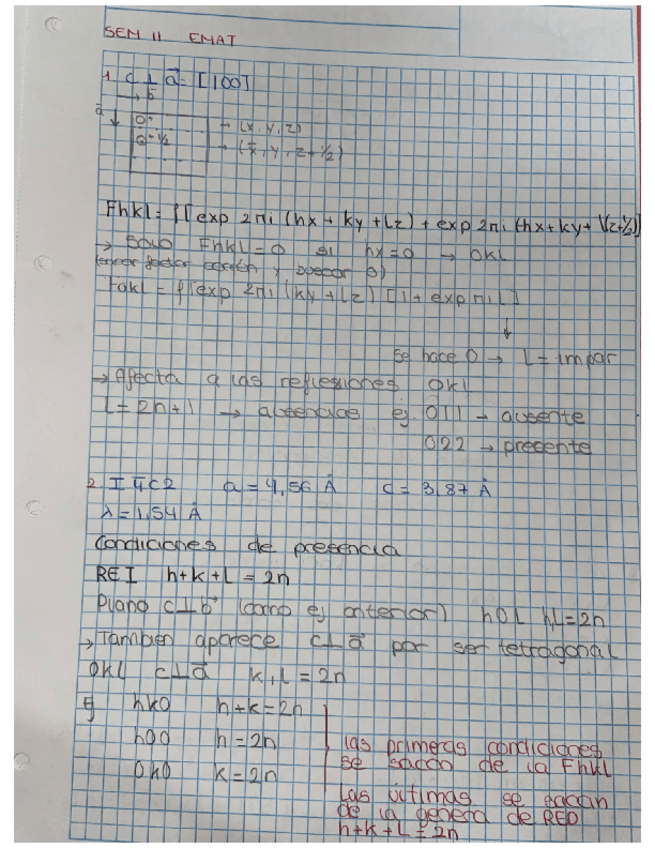 SEM 11 EMAT
1. c ⊥ a⃗ = [100]
b
a⃗
0+ → (x, y, z)
0-½ → (x̄, y, z+½)
Fhkl = f[exp 2πi (hx + ky + lz) + exp 2πi (hx + ky + l(z+½)]
→ Solo Fhkl = 0 si hx = 0 → 0kl
(sacar factor común y puede dar 0)
F0kl = f[exp 2πi (ky + lz) [1 + exp πi L]
↓
se hace 0 → L = impar
→ Afecta a las reflexiones 0kl
L = 2n+1 → ausencias ej 011 → ausente
022 → presente
2. I 4̄ c 2 a = 4,56 Å c = 3,87 Å
λ = 1,54 Å
Condiciones de presencia
RED I h+k+L = 2n
Plano c⊥b⃗ (como ej anterior) h0L h,L=2n
→ Tambien aparece c⊥a⃗ por ser tetragonal
0kL c⊥a⃗ k,L = 2n
hk0 h+k=2n
h00 h = 2n
0k0 k = 2n
las primeras condiciones
se sacan de la Fhkl
Las últimas se sacan
de la general de RED
h+k+L = 2n